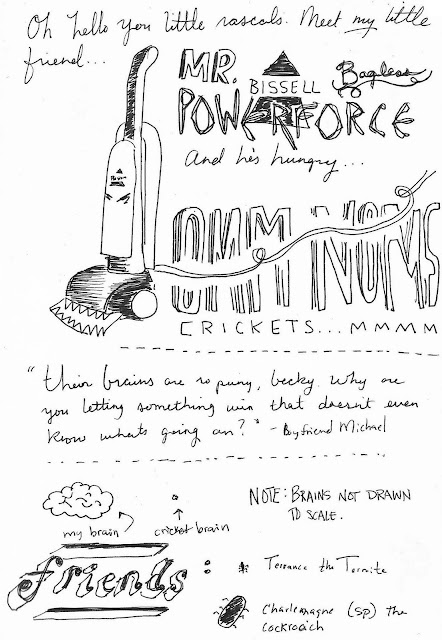 Oh hello you little rascals. Meet my little
friend...
MR. BISSELL Bagless
POWERFORCE
And he's hungry...
OHM NOMS
CRICKETS...MMMM
"their brains are so puny, becky. Why are
you letting something win that doesn't even
know what's going on?" - Boyfriend Michael
my brain cricket brain
NOTE: BRAINS NOT DRAWN
TO SCALE.
friends : Terrance the Termite
Charlemagne (sp) the
cockroach